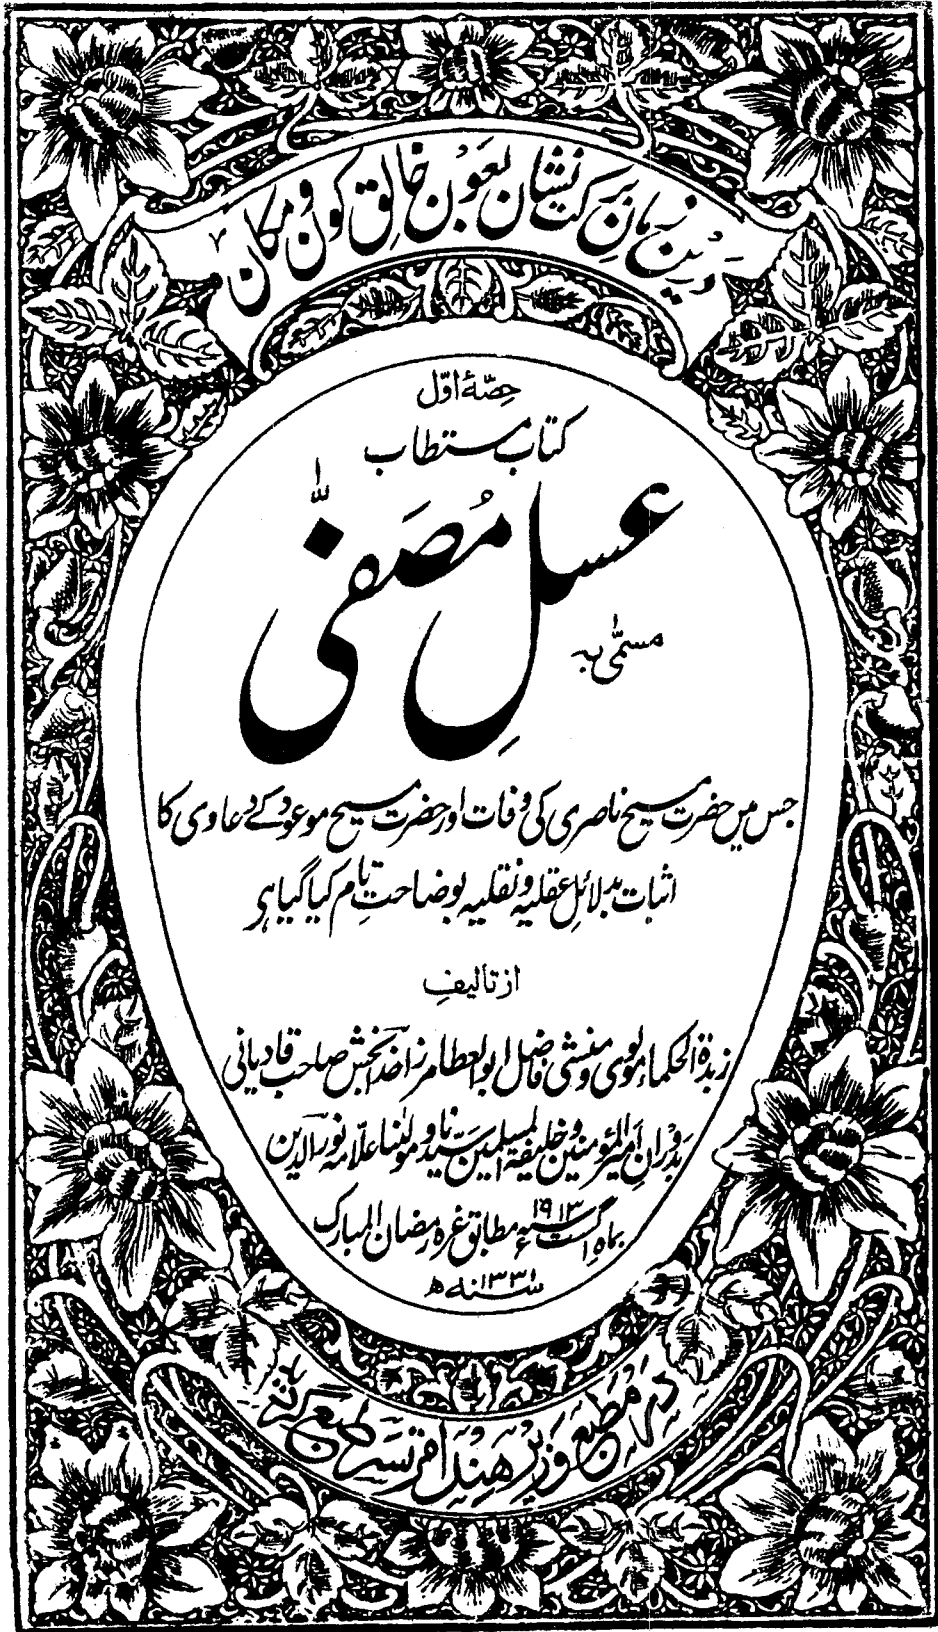 درین زمان برکت نشان بعون خالق کون و مکان
حصۂ اوّل
کتاب مستطاب
مسمّٰی بہ
عسلِ مُصَفّٰی
جس میں حضرت مسیح ناصری کی وفات اور حضرت مسیح موعود کے دعاوی کا
اثبات بدلائلِ عقلیہ و نقلیہ بوضاحتِ تام کیا گیا ہر
از تالیفِ
زبدۃ الحکماء مولوی و منشی فاضل ابوالعطا مرزا خدا بخش صاحب قادیانی
بدورانِ امیر المؤمنین و خلیفۃ المسلمین سیدنا و مولٰنا علامہ نور الدین
بماہ اگست سنہ ۱۹۱۳ء مطابق غرہ رمضان المبارک
سنہ ۱۳۳۱ھ
در مطبع وزیر ہند امرتسر طبع گردید